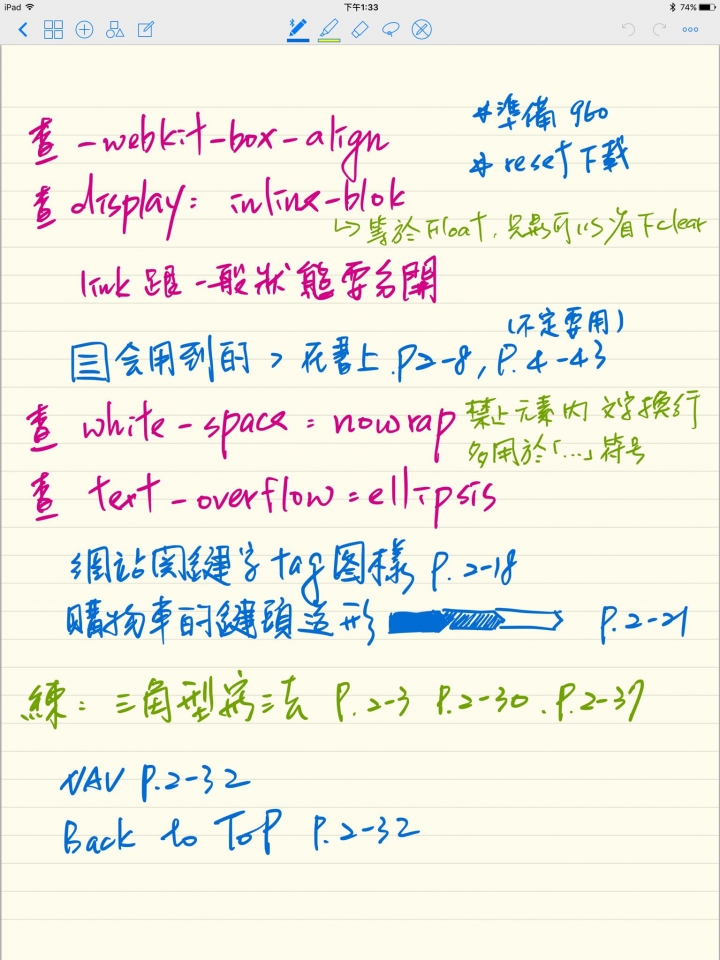 iPad 下午1:33 74%
*準備 960
查 -webkit-box-align
* reset 下載
查 display: inline-blok
↳ 等於 Float, 只是可以省下clear
link 跟一般狀態要分開
(不定要用)
会用到的 > 在書上 P2-8, P.4-43
查 white-space: nowrap 禁止元素內文字換行
多用於「...」符号
查 text-overflow = ellipsis
網站関鍵字 tag 图樣 P.2-18
購物車的鍵頭造形 P.2-21
練: 三角型寫法 P.2-3 P.2-30. P.2-37
NAV P.2-32
Back to ToP P.2-32